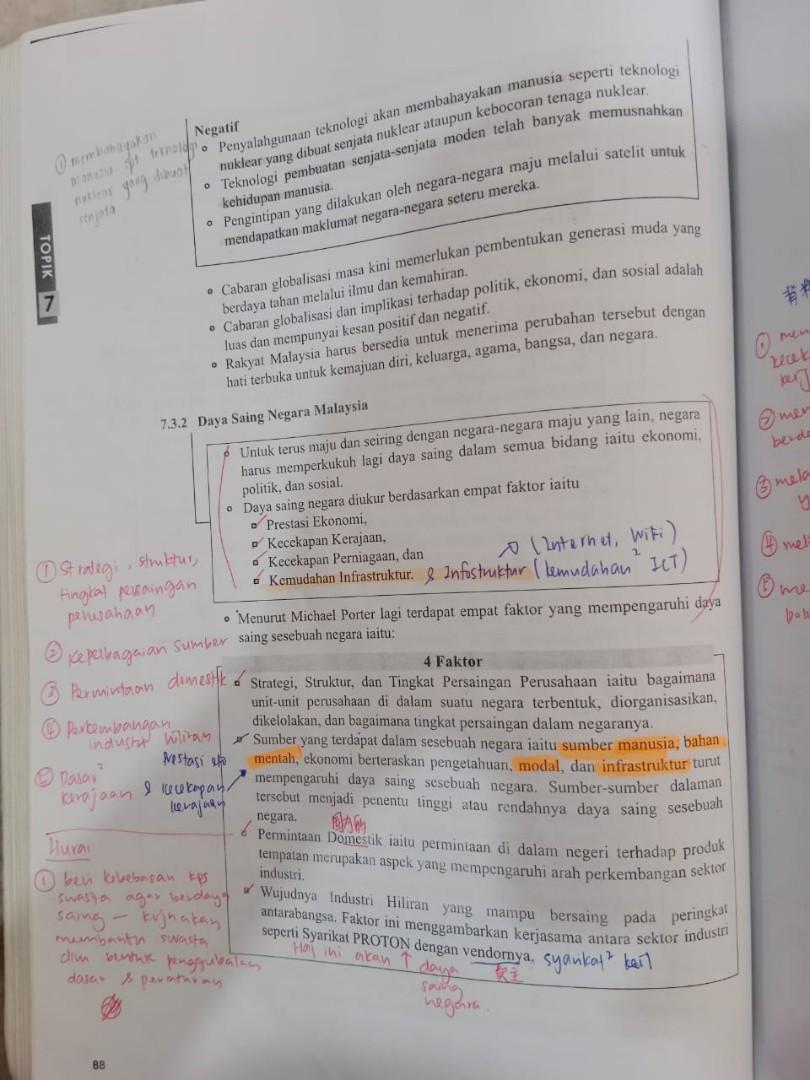 ① membahayakan
manusia spt teknologi
nuklear yang dibuat
senjata
TOPIK
7
Negatif
Penyalahgunaan teknologi akan membahayakan manusia seperti teknologi
nuklear yang dibuat senjata nuklear ataupun kebocoran tenaga nuklear.
Teknologi pembuatan senjata-senjata moden telah banyak memusnahkan
kehidupan manusia.
Pengintipan yang dilakukan oleh negara-negara maju melalui satelit untuk
mendapatkan maklumat negara-negara seteru mereka.
Cabaran globalisasi masa kini memerlukan pembentukan generasi muda yang
berdaya tahan melalui ilmu dan kemahiran.
Cabaran globalisasi dan implikasi terhadap politik, ekonomi, dan sosial adalah
luas dan mempunyai kesan positif dan negatif.
Rakyat Malaysia harus bersedia untuk menerima perubahan tersebut dengan
hati terbuka untuk kemajuan diri, keluarga, agama, bangsa, dan negara.
7.3.2 Daya Saing Negara Malaysia
Untuk terus maju dan seiring dengan negara-negara maju yang lain, negara
harus memperkukuh lagi daya saing dalam semua bidang iaitu ekonomi,
politik, dan sosial.
Daya saing negara diukur berdasarkan empat faktor iaitu
Prestasi Ekonomi,
Kecekapan Kerajaan,
Kecekapan Perniagaan, dan
Kemudahan Infrastruktur. & Infostruktur (kemudahan² ICT)
(Internet, Wifi)
Menurut Michael Porter lagi terdapat empat faktor yang mempengaruhi daya
saing sesebuah negara iaitu:
4 Faktor
Strategi, Struktur, dan Tingkat Persaingan Perusahaan iaitu bagaimana
unit-unit perusahaan di dalam suatu negara terbentuk, diorganisasikan,
dikelolakan, dan bagaimana tingkat persaingan dalam negaranya.
Sumber yang terdapat dalam sesebuah negara iaitu sumber manusia, bahan
mentah, ekonomi berteraskan pengetahuan, modal, dan infrastruktur turut
mempengaruhi daya saing sesebuah negara. Sumber-sumber dalaman
tersebut menjadi penentu tinggi atau rendahnya daya saing sesebuah
negara.
Permintaan Domestik iaitu permintaan di dalam negeri terhadap produk
tempatan merupakan aspek yang mempengaruhi arah perkembangan sektor
industri.
Wujudnya Industri Hiliran yang mampu bersaing pada peringkat
antarabangsa. Faktor ini menggambarkan kerjasama antara sektor industri
seperti Syarikat PROTON dengan vendornya. syarikat² kecil
Hal ini akan ↑ daya
saing
negara.
① Strategi, struktur,
tingkat persaingan
perusahaan
② Kepelbagaian sumber
③ Permintaan domestik
④ Perkembangan
industri hiliran
⑤ Dasar²
kerajaan
& kecekapan
kerajaan
Hurai
① beri kebebasan kps
swasta agar berdaya
saing – krjnakan
membantu swasta
dlm bentuk penggubalan
dasar & peraturan
88